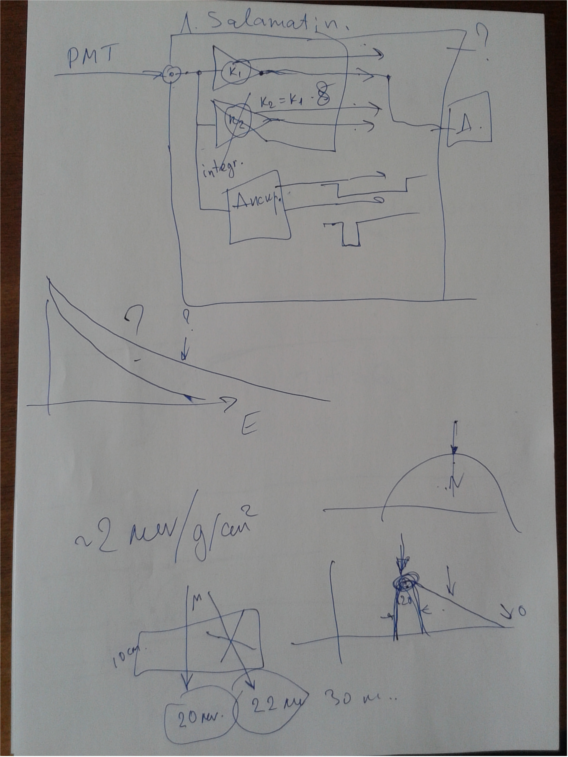 Л. Salamatin.
PMT
?
K1
K2 = K1 · 8
K2
Д.
integr.
Дискр.
? ?
E
N
~2 MeV/g/cm²
20
0
M
10 cm.
20 MeV. 22 MeV 30 M..